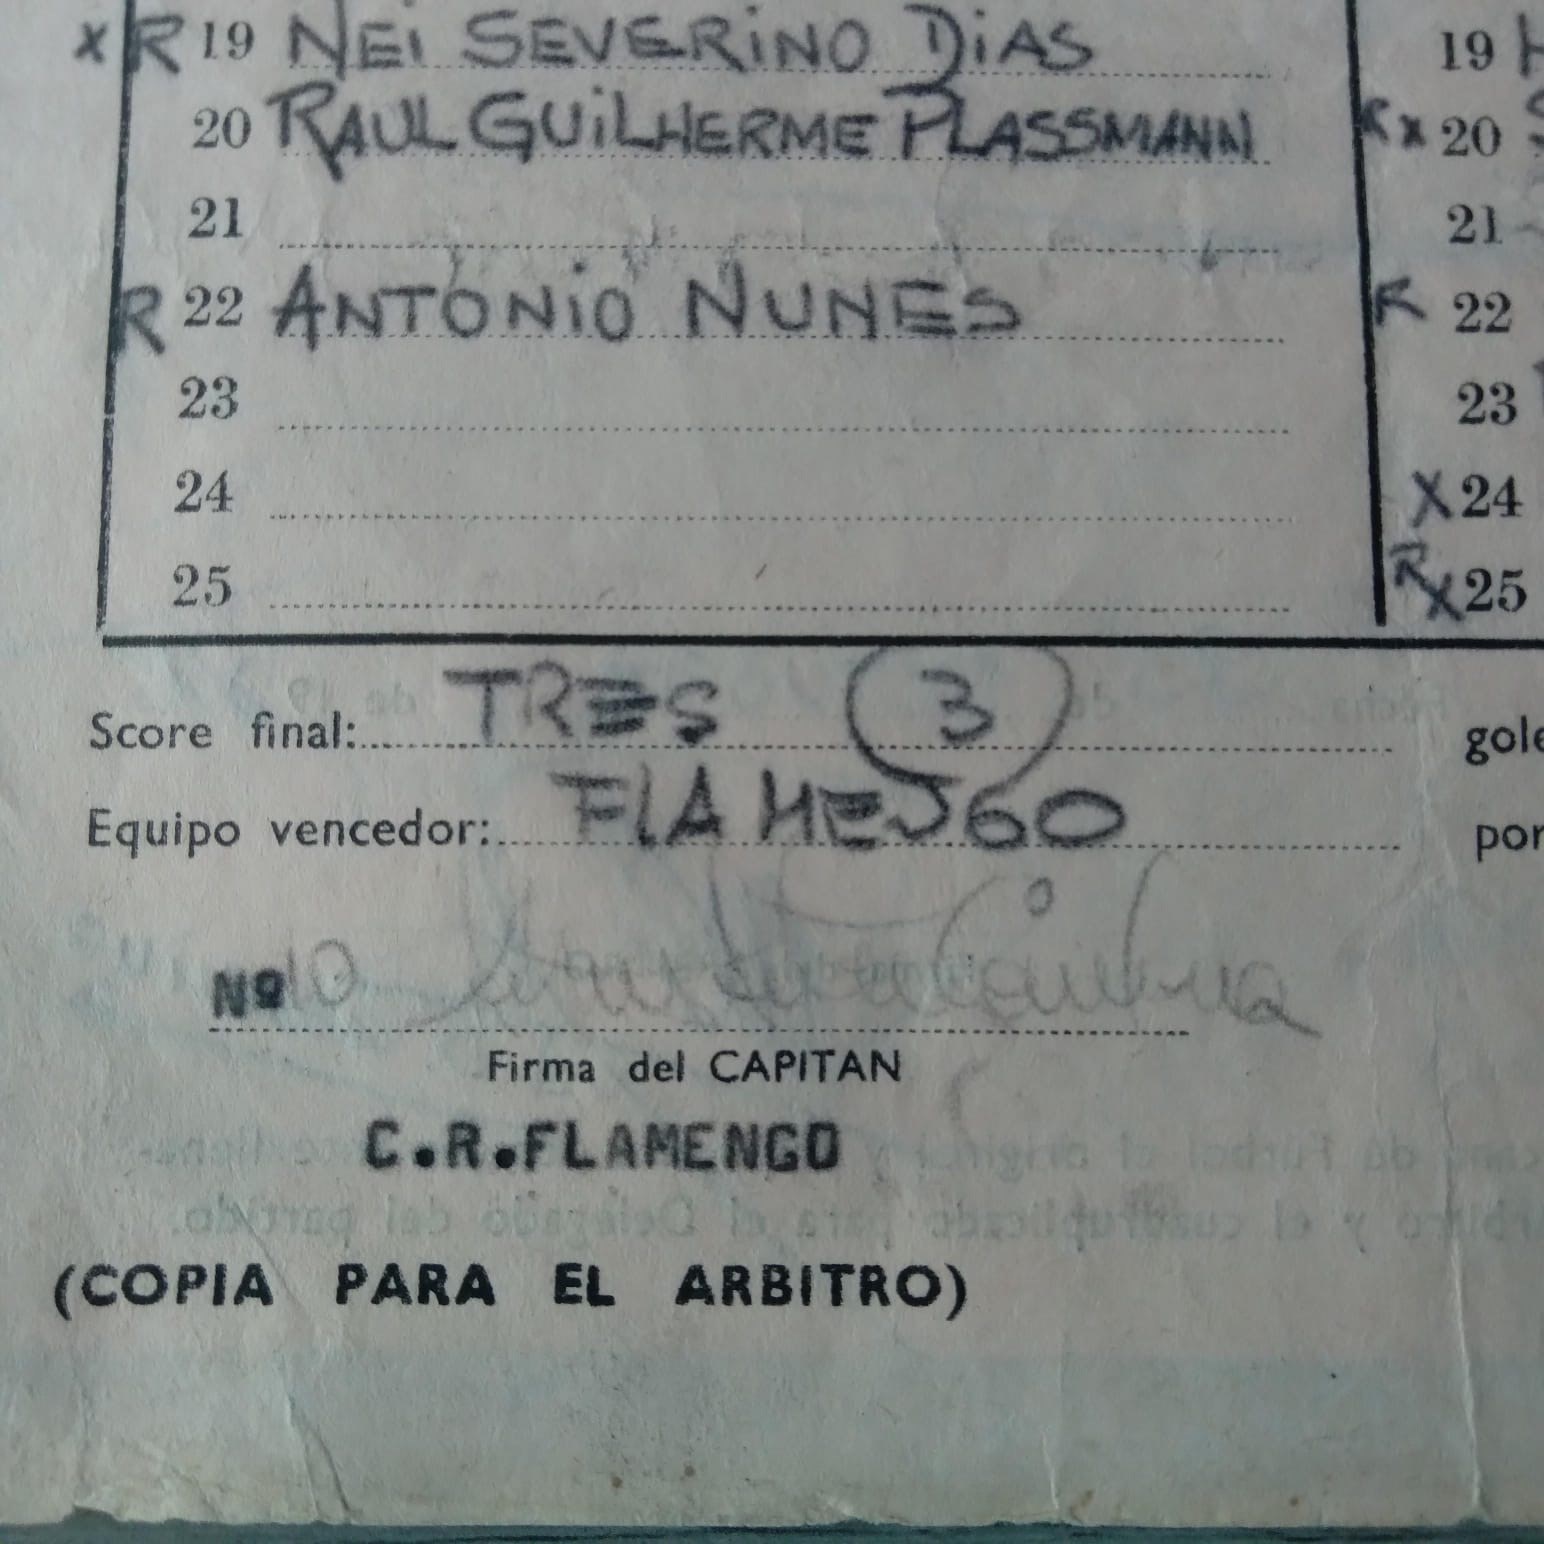 X R 19 NEI SEVERINO DIAS 19
20 RAUL GUILHERME PLASSMANN R X 20
21 21
R 22 ANTÔNIO NUNES R 22
23 23
24 X 24
25 R X 25
Score final: TRES 3 gole
Equipo vencedor: FLAMENGO por
Nº 10
Firma del CAPITAN
C.R.FLAMENGO
(COPIA PARA EL ARBITRO)